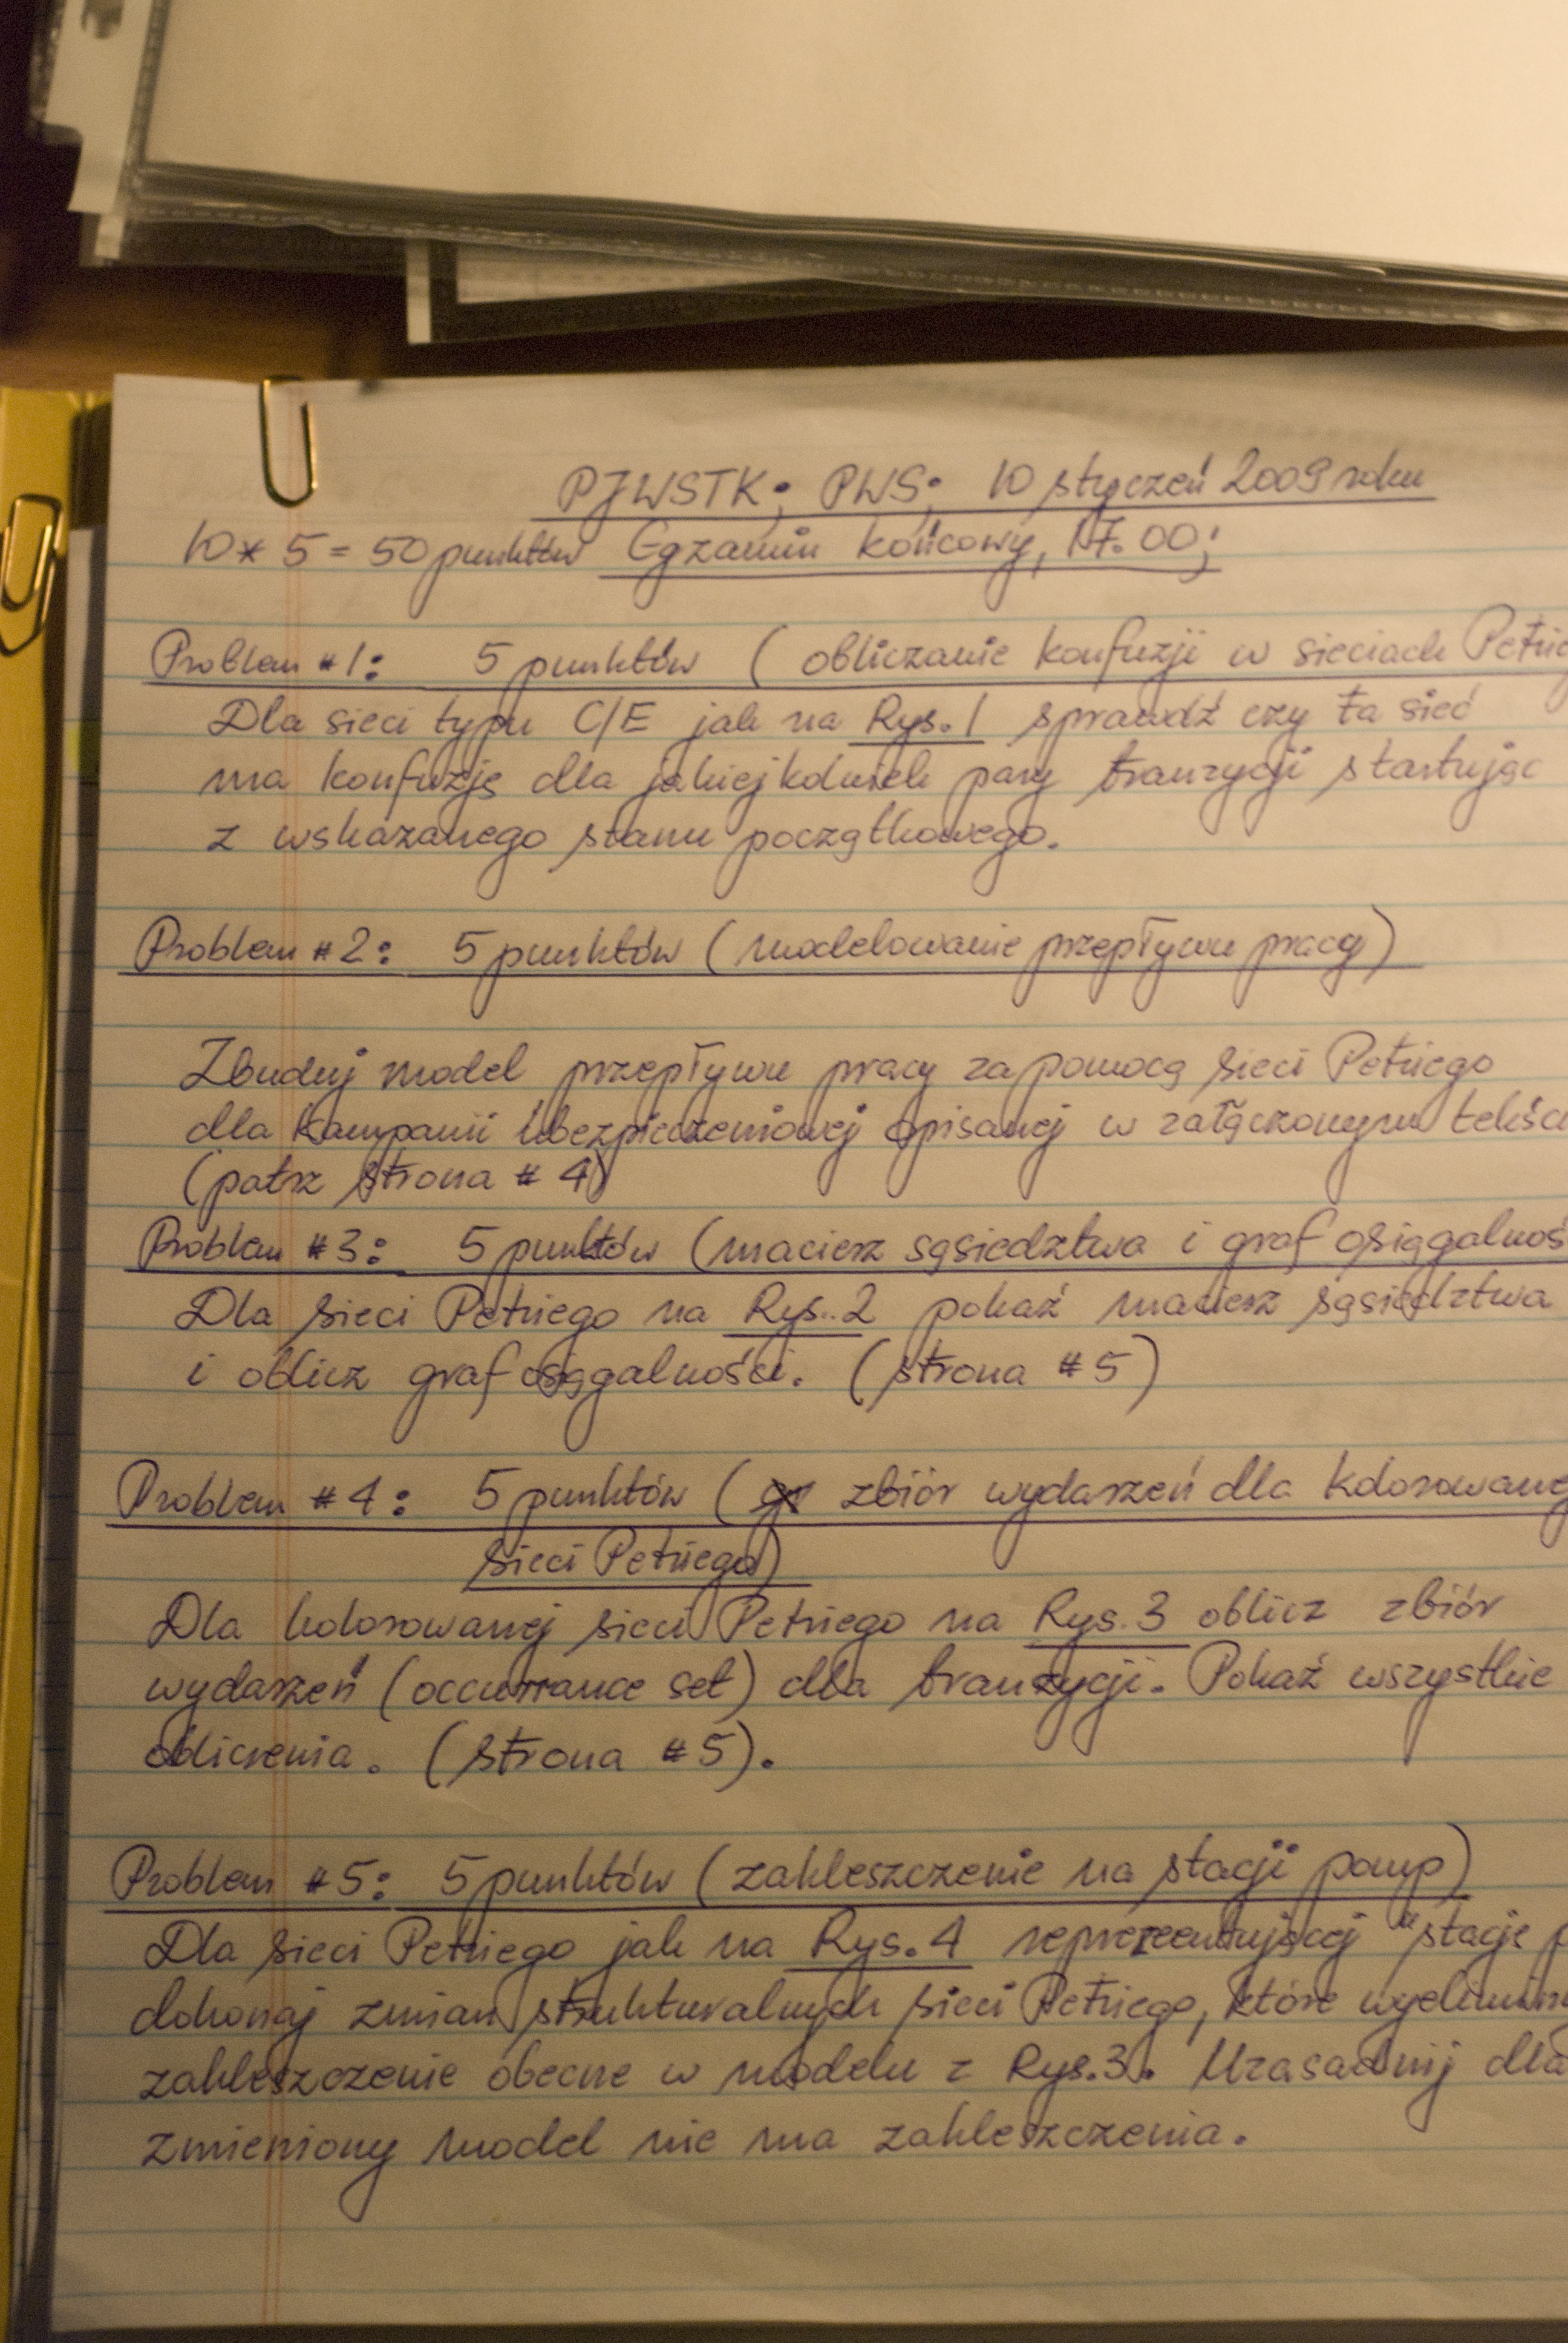 PJWSTK; PWS; 10 styczeń 2009 roku
10 * 5 = 50 punktów Egzamin końcowy, 17.00;
Problem #1: 5 punktów (obliczanie konfuzji w sieciach Petrieg
Dla sieci typu C/E jak na Rys.1 sprawdź czy ta sieć
ma konfuzję dla jakiejkolwiek pary tranzycji startując
z wskazanego stanu początkowego.
Problem #2: 5 punktów (modelowanie przepływu pracy)
Zbuduj model przepływu pracy za pomocą sieci Petriego
dla kampanii ubezpieczeniowej opisanej w załączonym tekści
(patrz strona #4)
Problem #3: 5 punktów (macierz sąsiedztwa i graf osiągalnoś
Dla sieci Petriego na Rys.2 pokaż macierz sąsiedztwa
i oblicz graf osiągalności. (strona #5)
Problem #4: 5 punktów ( zbiór wydarzeń dla kolorowanej
sieci Petriego)
Dla kolorowanej sieci Petriego na Rys.3 oblicz zbiór
wydarzeń (occurrance set) dla tranzycji. Pokaż wszystkie
obliczenia. (strona #5).
Problem #5: 5 punktów (zakleszczenie na stacji pomp)
Dla sieci Petriego jak na Rys.4 reprezentującej "stację p
dokonaj zmian strukturalnych sieci Petriego, które wyelimin
zakleszczenie obecne w modelu z Rys.3. Uzasadnij dla
zmieniony model nie ma zakleszczenia.